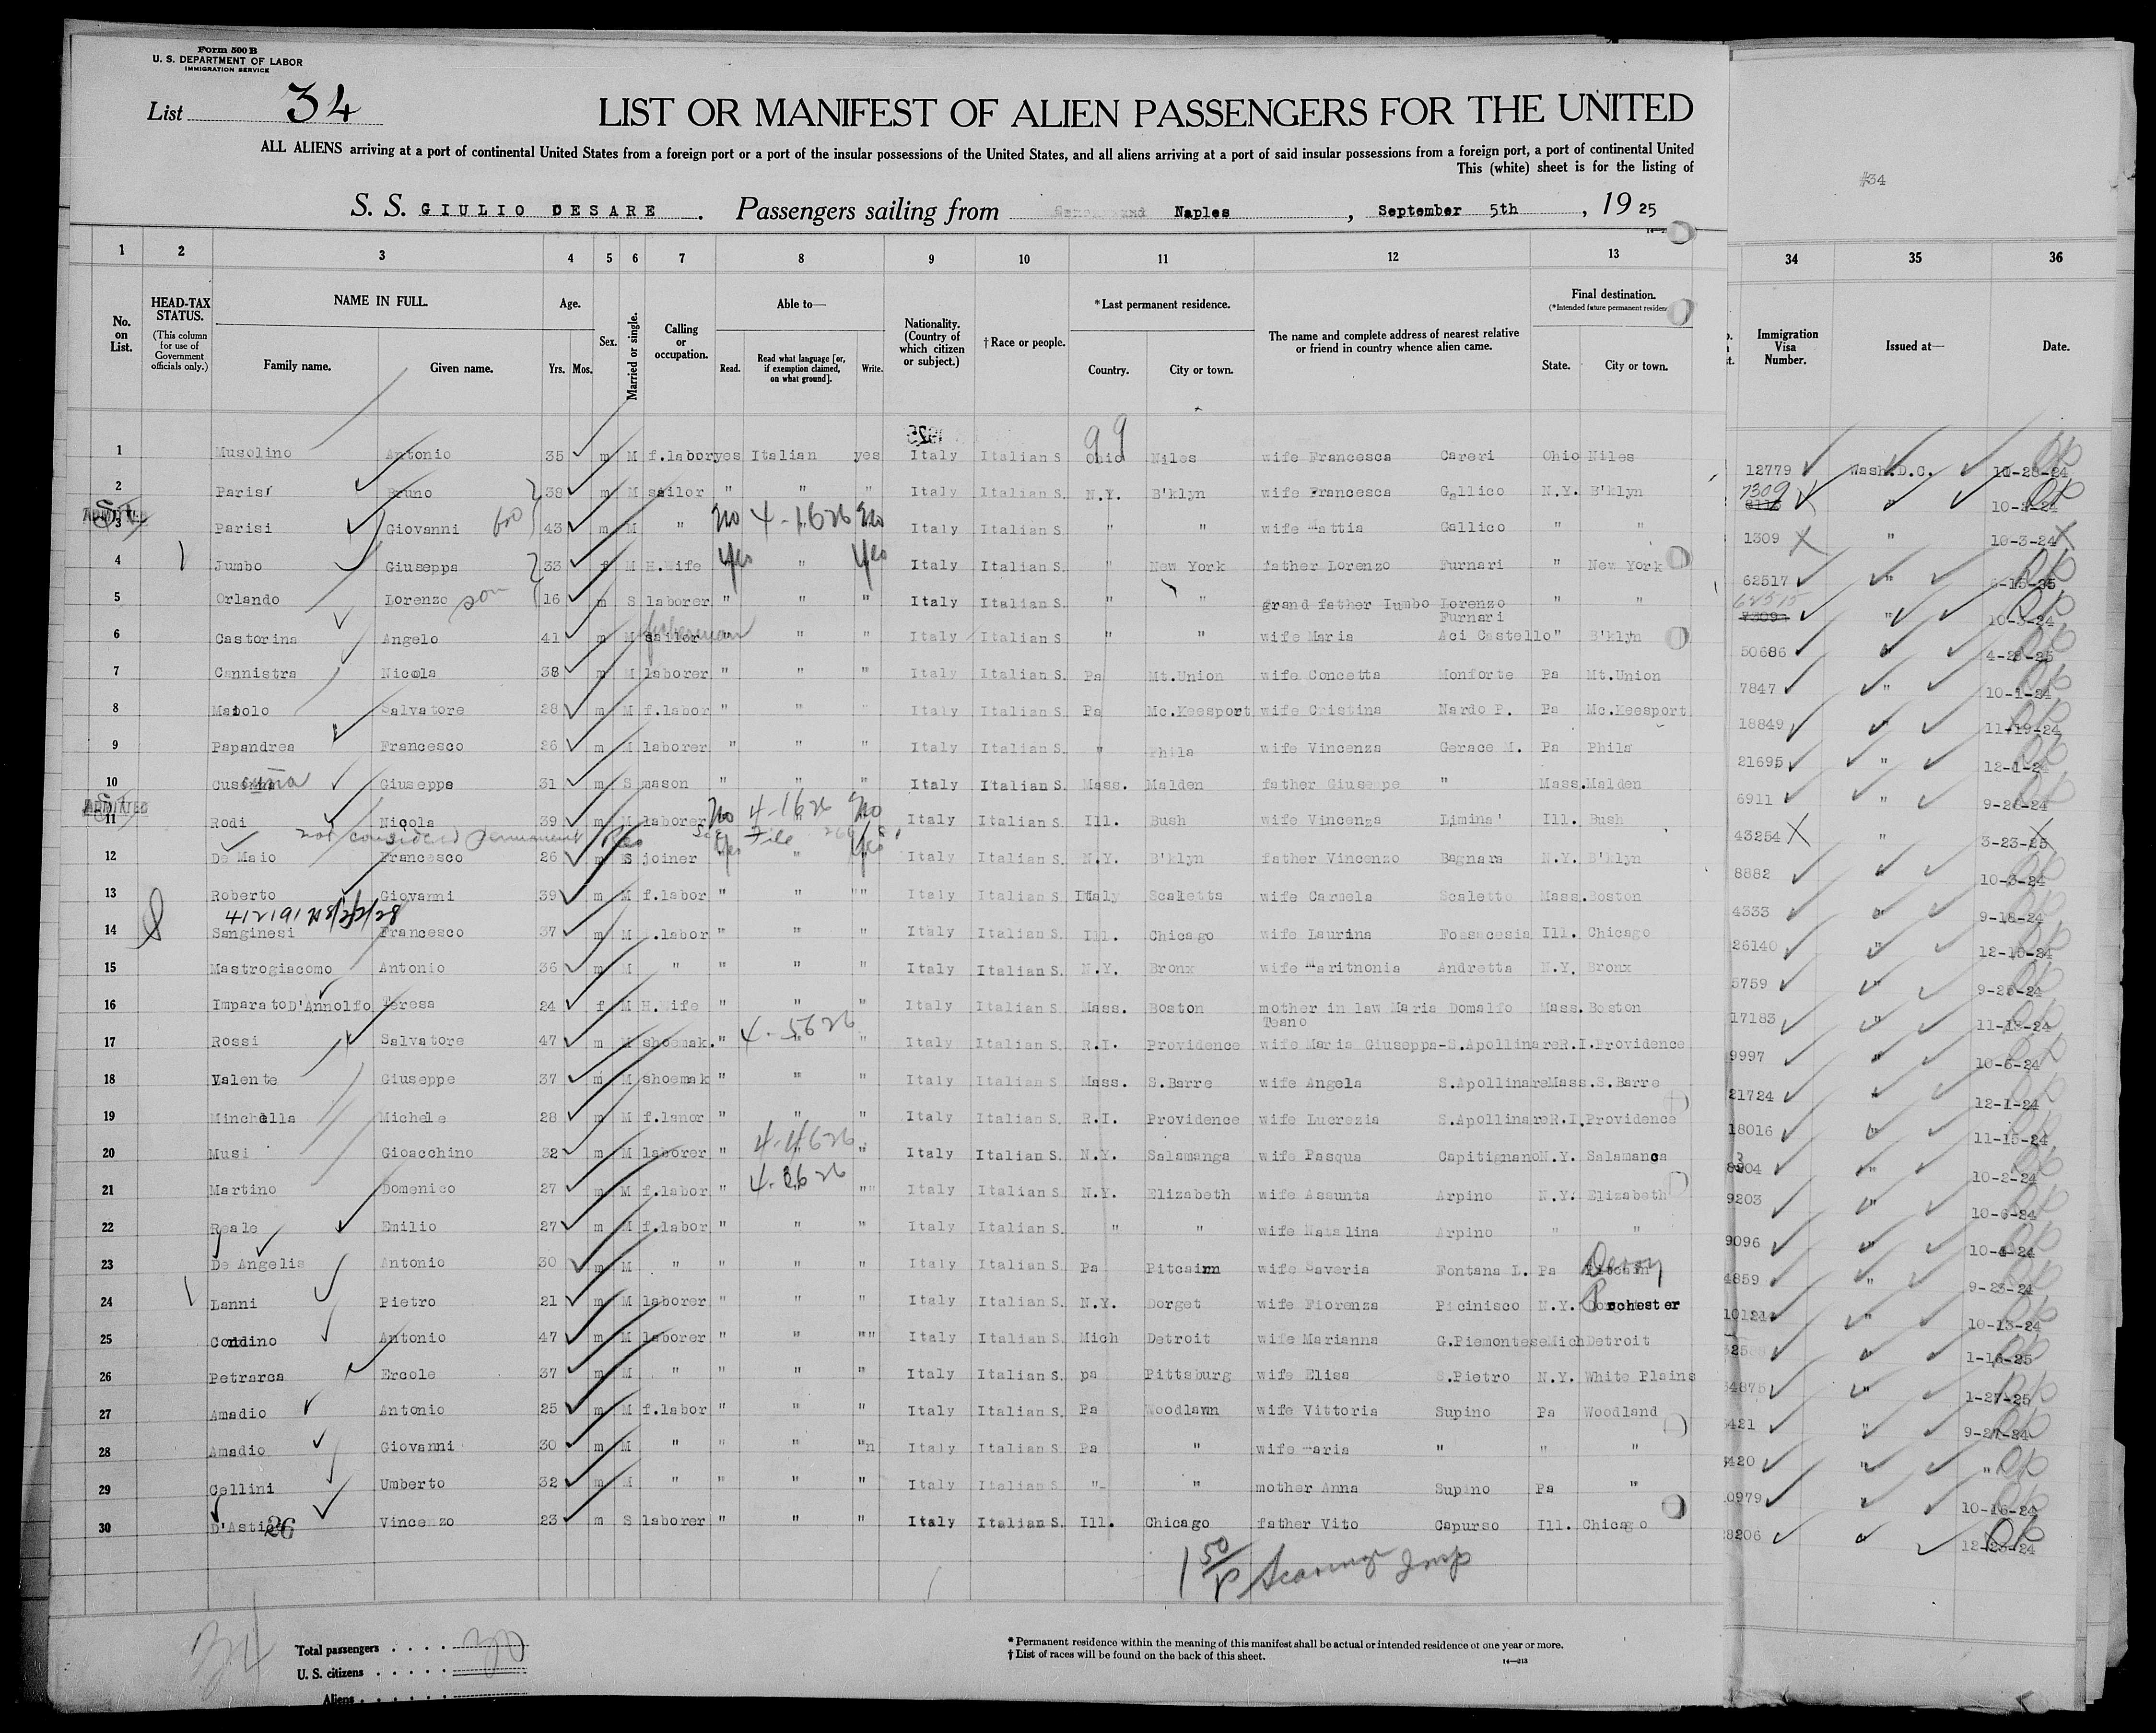 Form 500 B
U. S. DEPARTMENT OF LABOR
IMMIGRATION SERVICE
List 34
LIST OR MANIFEST OF ALIEN PASSENGERS FOR THE UNITED
ALL ALIENS arriving at a port of continental United States from a foreign port or a port of the insular possessions of the United States, and all aliens arriving at a port of said insular possessions from a foreign port, a port of continental United
This (white) sheet is for the listing of
#34
S. S. GIULIO CESARE . Passengers sailing from Naples , September 5th , 19 25
1 2 3 4 5 6 7 8 9 10 11 12 13 34 35 36
No. on List.
HEAD-TAX STATUS.
(This column for use of Government officials only.)
NAME IN FULL.
Family name. Given name.
Age.
Yrs. Mos.
Sex.
Married or single.
Calling or occupation.
Able to—
Read. Read what language [or, if exemption claimed, on what ground]. Write.
Nationality. (Country of which citizen or subject.)
† Race or people.
* Last permanent residence.
Country. City or town.
The name and complete address of nearest relative or friend in country whence alien came.
Final destination.
(*Intended future permanent residen
State. City or town.
Immigration Visa Number.
Issued at—
Date.
99
1 Musolino Antonio 35 m M f.labor yes Italian yes Italy Italian S Ohio Niles wife Francesca Careri Ohio Niles 12779 Wash.D.C. 10-28-24
2 Parisi Bruno 38 m M sailor " " " Italy Italian S. N.Y. B'klyn wife Francesca Gallico N.Y. B'klyn 7309 " 10-3-24
3 Parisi Giovanni bro 43 m M " no 4-1626 no Italy Italian S. " " wife Mattia Gallico " " 1309 " 10-3-24
4 Jumbo Giuseppa 33 f M H.Wife yes " yes Italy Italian S. " New York father Lorenzo Furnari " New York 62517 " 6-15-25
5 Orlando Lorenzo son 16 m S laborer " " " Italy Italian S. " " grand father Iumbo Lorenzo Furnari " " 62515 " 10-3-24
6 Castorina Angelo 41 m M sailor fisherman " " " Italy Italian S. " " wife Maria Aci Castello " B'klyn 50686 " 4-28-25
7 Cannistra Nicola 38 m M laborer " " " Italy Italian S. Pa Mt.Union wife Concetta Monforte Pa Mt.Union 7847 " 10-1-24
8 Maiolo Salvatore 28 m M f.labor " " " Italy Italian S. Pa Mc.Keesport wife Cristina Nardo P. Pa Mc.Keesport 18849 " 11-19-24
9 Papandrea Francesco 26 m M laborer " " " Italy Italian S. " Phila wife Vincenza Gerace M. Pa Phila 21695 " 12-1-24
10 Giuseppe 31 m S mason " " " Italy Italian S. Mass. Malden father Giuseppe " Mass. Malden 6911 " 9-26-24
ADMITTED
11 Rodi Nicola 39 m M laborer no 4-1626 no Italy Italian S. Ill. Bush wife Vincenza Limina' Ill. Bush 43254 " 3-23-25
not considered permanent Res See File
12 De Maio Francesco 26 m S joiner yes " yes Italy Italian S. N.Y. B'klyn father Vincenzo Bagnara N.Y. B'klyn 8882 " 10-3-24
13 Roberto Giovanni 39 m M f.labor " " "" Italy Italian S. Italy Scaletta wife Carmela Scaletto Mass. Boston 4333 " 9-18-24
14 Sanginesi Francesco 37 m M f.labor " " " Italy Italian S. Ill. Chicago wife Laurina Fossacesia Ill. Chicago 26140 " 12-15-24
15 Mastrogiacomo Antonio 36 m M " " " " Italy Italian S. N.Y. Bronx wife Maritnonia Andretta N.Y. Bronx 5759 " 9-25-24
16 Imparato D'Annolfo Teresa 24 f M H.Wife " " " Italy Italian S. Mass. Boston mother in law Maria Domalfo Teano Mass. Boston 17183 " 11-13-24
17 Rossi Salvatore 47 m M shoemak. " 4-5626 " Italy Italian S. R.I. Providence wife Maria Giuseppa-S.Apollinare R.I. Providence 9997 " 10-6-24
18 Valente Giuseppe 37 m M shoemak " " " Italy Italian S. Mass. S.Barre wife Angela S.Apollinare Mass. S.Barre 21724 " 12-1-24
19 Minchella Michele 28 m M f.lanor " " " Italy Italian S. R.I. Providence wife Lucrezia S.Apollinare R.I. Providence 18016 " 11-15-24
20 Musi Gioacchino 32 m M laborer " 4-4626 " Italy Italian S. N.Y. Salamanga wife Pasqua Capitignano N.Y. Salamanca 8204 " 10-2-24
21 Martino Domenico 27 m M f.labor " " "" Italy Italian S. N.Y. Elizabeth wife Assunta Arpino N.Y. Elizabeth 9203 " 10-6-24
22 Reale Emilio 27 m M f.labor " " " Italy Italian S. " " wife Natalina Arpino " " 9096 " 10-4-24
23 De Angelis Antonio 30 m M " " " " Italy Italian S. Pa Pitcairn wife Saveria Fontana L. Pa Derry 4859 " 9-23-24
24 Lanni Pietro 21 m M laborer " " " Italy Italian S. N.Y. Dorget wife Fiorenza Picinisco N.Y. Rochester 10121 " 10-13-24
25 Condino Antonio 47 m M laborer " " "" Italy Italian S. Mich Detroit wife Marianna G.Piemontese Mich Detroit " 1-16-25
26 Petrarca Ercole 37 m M " " " " Italy Italian S. pa Pittsburg wife Elisa S.Pietro N.Y. White Plains 34875 " 1-27-25
27 Amadio Antonio 25 m M f.labor " " " Italy Italian S. Pa Woodlawn wife Vittoria Supino Pa Woodland 421 " 9-27-24
28 Amadio Giovanni 30 m M " " " "n Italy Italian S. Pa " wife Maria " " " 420 " "
29 Cellini Umberto 32 m M " " " " Italy Italian S. " " mother Anna Supino Pa " 0979 " 10-16-24
30 D'Astice Vincenzo 23 m S laborer " " " Italy Italian S. Ill. Chicago father Vito Capurso Ill. Chicago 28206 " 12-23-24
26
34
Total passengers . . . . 30
U. S. citizens . . . . .
Aliens . . . . . .
* Permanent residence within the meaning of this manifest shall be actual or intended residence of one year or more.
† List of races will be found on the back of this sheet.
14—213